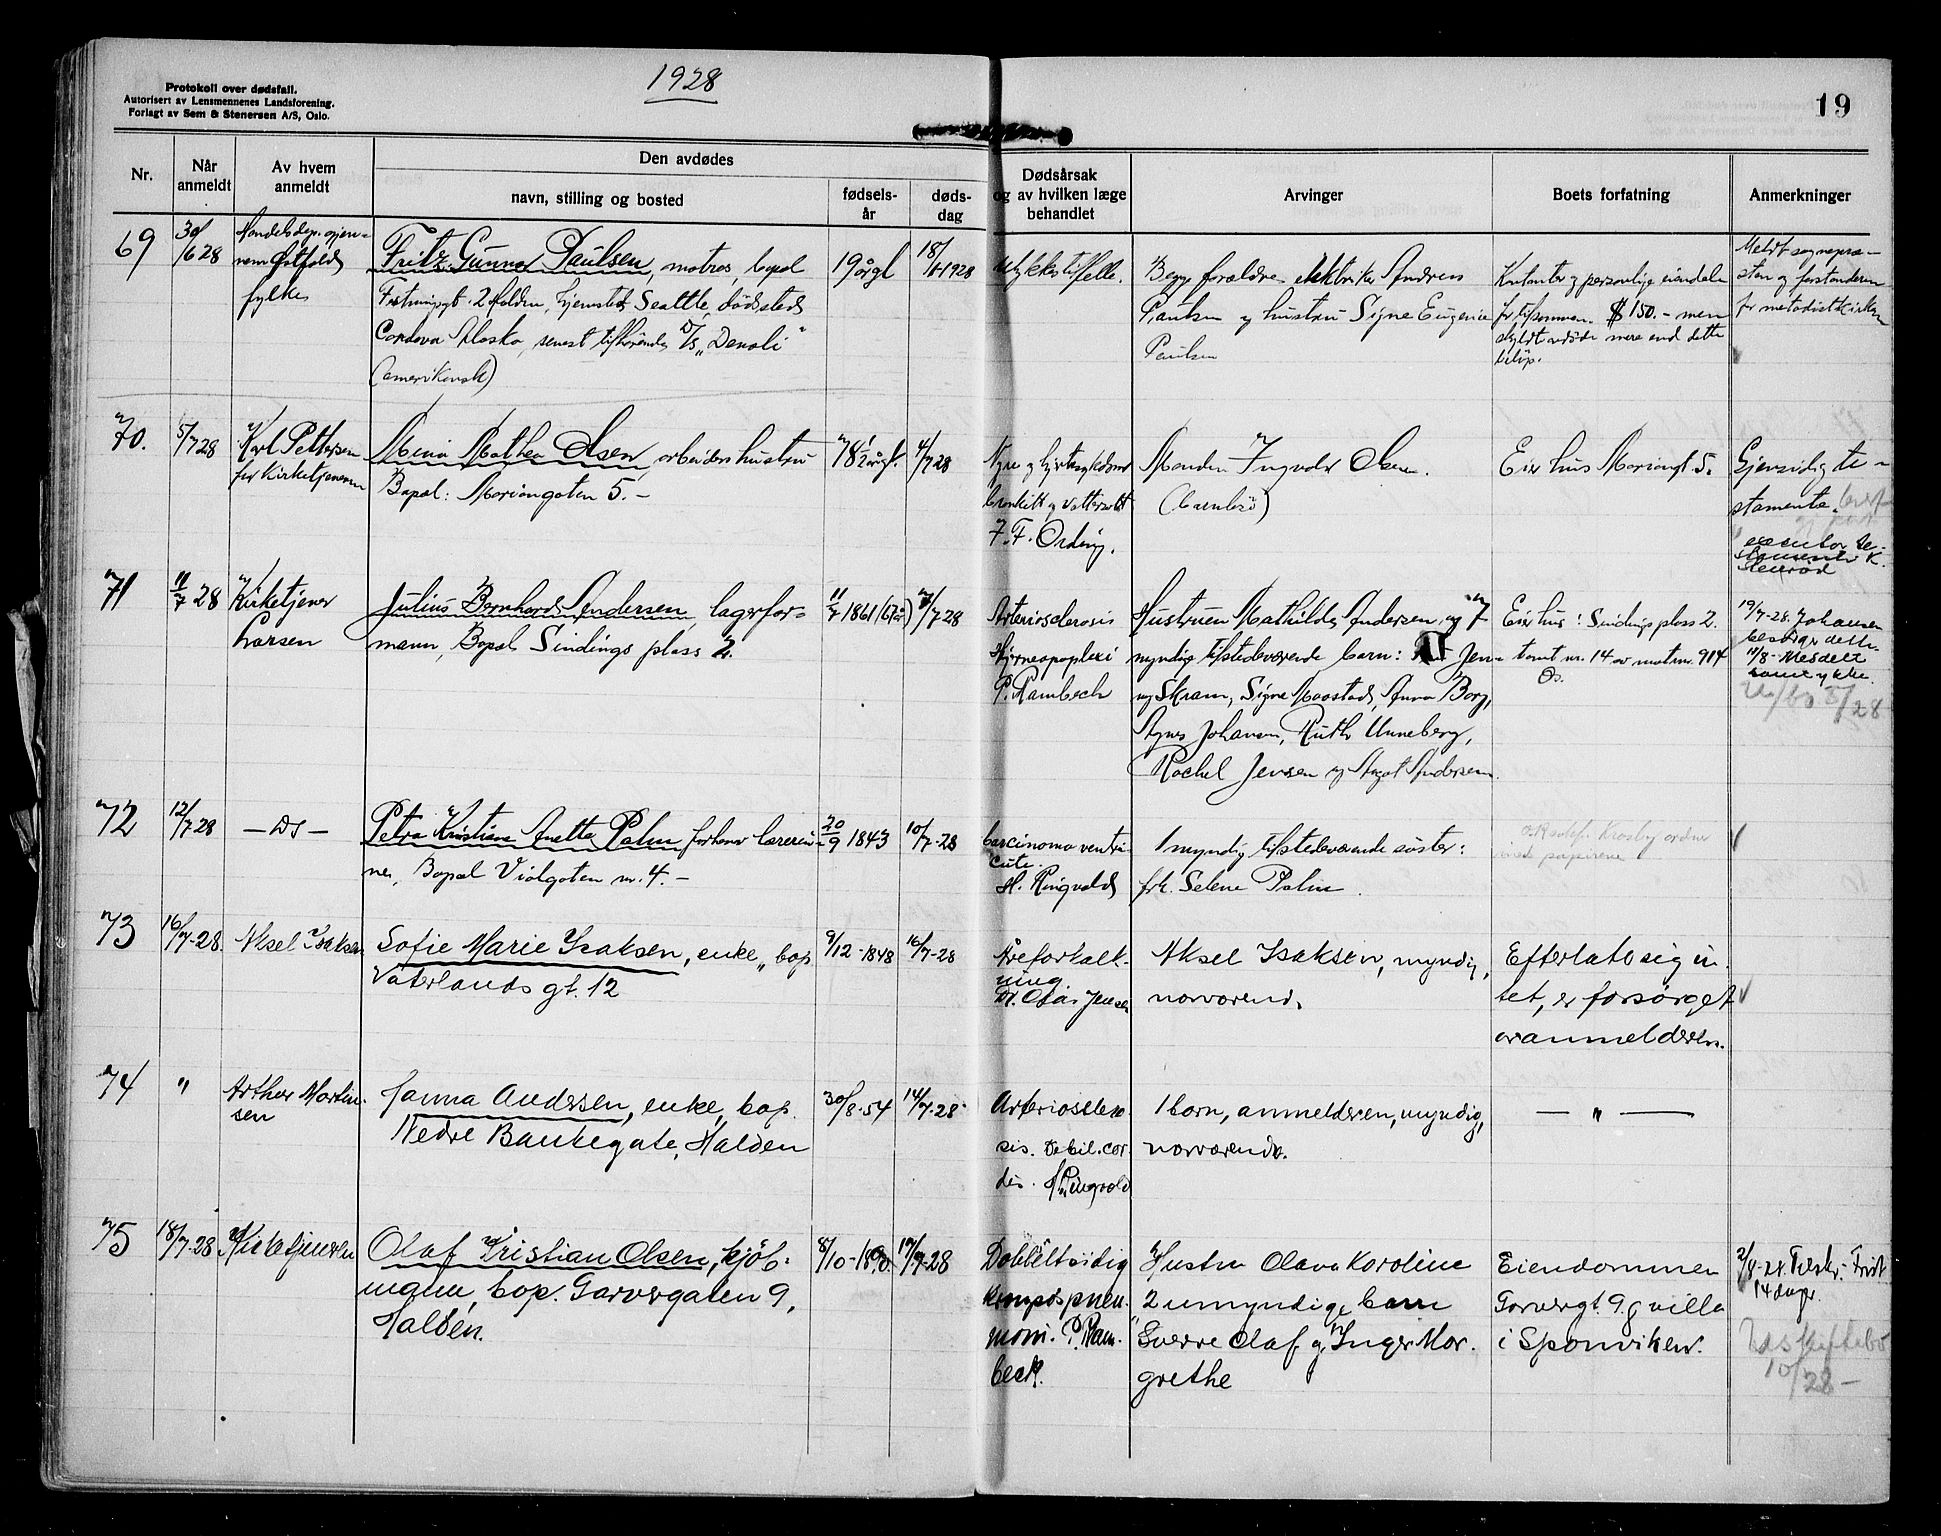 1928
Protokoll over dødsfall.
Autorisert av Lensmennenes Landsforening.
Forlagt av Sem & Stenersen A/S, Oslo.
19
Nr.
Når
anmeldt
Av hvem
anmeldt
Den avdødes
navn, stilling og bosted
fødsels-
år
døds-
dag
Dødsårsak
og av hvilken læge
behandlet
Arvinger
Boets forfatning
Anmerkninger
69
30/6 28
Handelsdep. gjen-
nem Østfold
fylke
Fritz Gunnar Paulsen, matros, bopal
2 Halden, hjemsted Seattle, dødssted
Cordova Alaska, senest tilhørende D/s "Denali"
(amerikansk)
19 årgl
18/ 1928
Ulykkestilfelle.
Begge forældre elektriker Andreas
Paulsen og hustru Signe Eugenie
Paulsen
Kontanter og personlige eiendele
tilsammen $150.- men
skyldt mere end dette
beløp.
Meldt sognepre-
sten og forstanderen
for metodistkirken
70.
5/7 28
Karl Pettersen
for Kirketjeneren
Mina Mathea Olsen, arbeidershustru
Bopal: Mariangaten 5. -
78 1/2 årgl.
4/7 28
Nyre og hjertesykdom
bronkitt og vattersott
F. Ording.
Manden Ingvald Olsen.
(barnløs)
Eier hus Mariangt 5.
Gjensidig te-
stamente.
executor te-
stamente K.
Stenrød
71
11/7 28
Kirketjener
Larsen
Julius Bernhard Andersen, lagerfor-
mann, Bopal Sindings plass 2.
11/7 1861 (67 år)
7/7-28
Arteriosclerosis
Hjerneapoplexi
P. Rambech
Hustruen Mathilde Andersen og 7
myndige tilstedeværende barn: Jen-
ny Skram, Signe Maastad, Anna Borg,
Agnes Johansen, Ruth Unneberg,
Rachel Jensen og Aagot Andersen.
Eier hus: Sindings plass 2.
tomt nr. 14 av matrnr. 914
Os.
19/7-28. Johansen
besørger dette.
11/8- Meddelt
samtykke.
5/28
72
12/7 28
— Ds —
Petra Kristiane Anette Palm forhenv. lærerin-
ne, Bopal Violgaten nr. 4. -
20/9 1843
10/7-28
Carcinoma ventri-
cule.
H. Ringvold
1 myndig tilstedeværende søster:
frk. Selene Palm
Krosby ordner
papirene
73
16/7-28.
Aksel Isaksen
Sofie Marie Isaksen, enke, bop
Vaterlands gt. 12
9/12-1848
16/7-28
Åreforkalk-
ning
Dr. Olav Jensen
Aksel Isaksen, myndig,
nærværend.
Efterlater sig in-
tet, er forsørget
av anmelderen.
74
"
Arthur Martin-
sen
Hanna Andersen, enke, bop.
Nedre Bankegate, Halden
30/8-54
14/7-28
Arteriosclero-
sis. Debil. cor-
dis. H. Ringvold
1 barn, anmelderen, myndig,
nærværende.
— " —
75
18/7-28
Kirketjeneren
Olaf Kristian Olsen, kjøb-
mann, bop. Garvergaten 9,
Halden.
8/10-18
17/7-28
Dobbeltsidig
krupøs pneu-
moni. P. Ram-
beck.
Hustru Olava Karoline
2 umyndige barn
Sverre Olaf og Inger Mar-
grethe
Eiendommen
Garvergt. 9 og villa
i Sponviken.
2/8-28. Tilskr. Frist
14 dager.
Uds skiftebo
10/28-